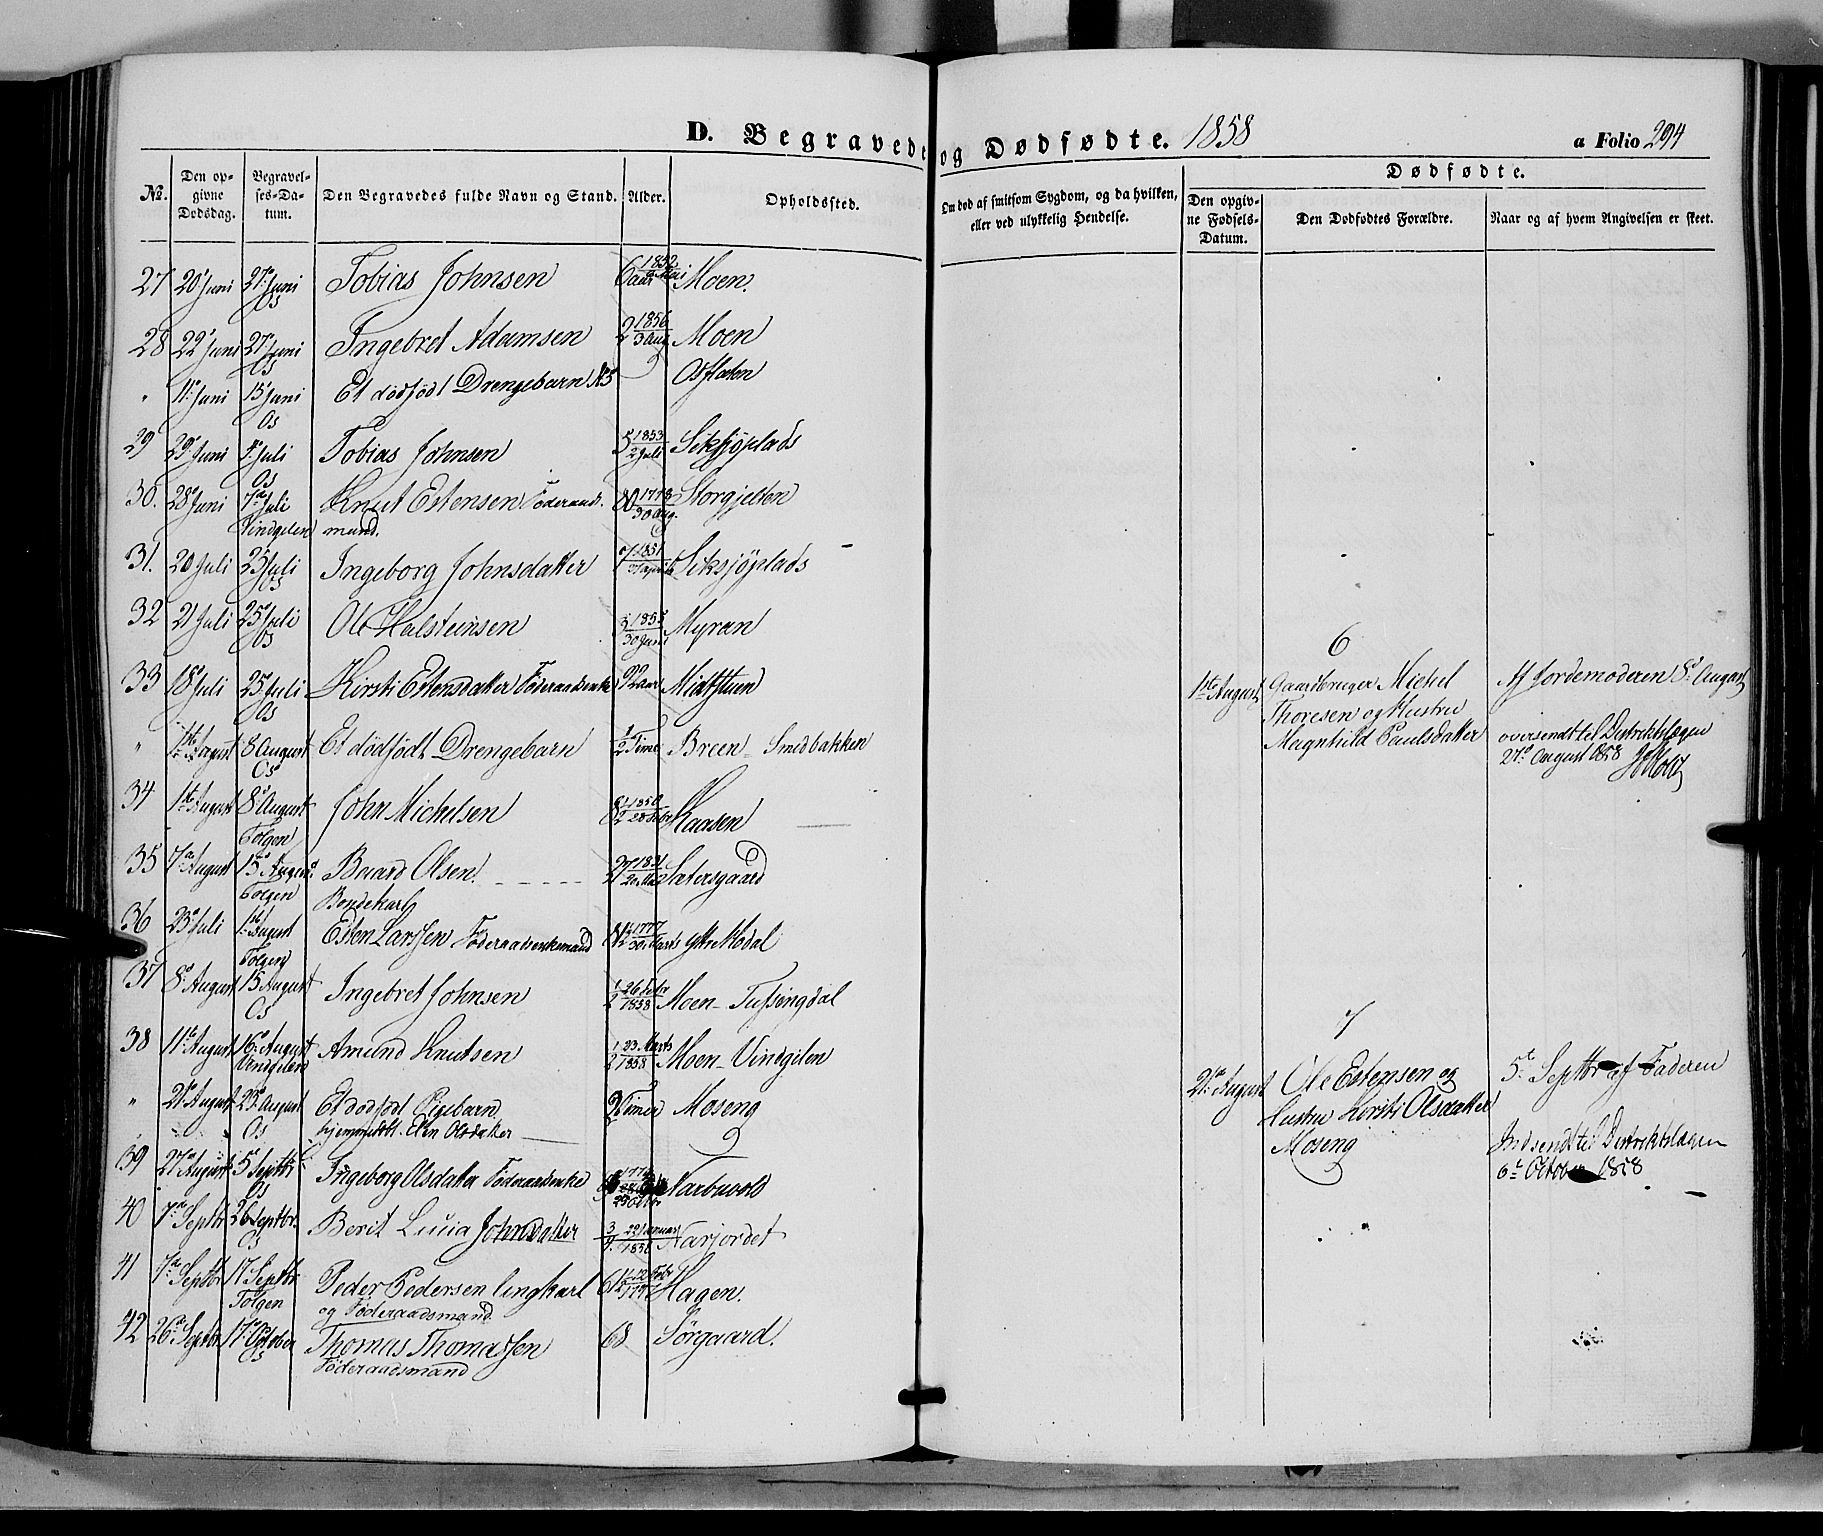 D. Begravede og Dødfødte. 1858 a Folio 294
No. Den opgivne Dødsdag. Begravelses-Datum. Den Begravedes fulde Navn og Stand. Alder. Opholdssted. Om død af smitsom Sygdom, og da hvilken, eller ved ulykkelig Hendelse. Dødfødte.
Den opgivne Fødsels-Datum. Den Dødfødtes Forældre. Naar og af hvem Angivelsen er skeet.
27 20 Juni 27 Juni Os Tobias Johnsen 6 aar 1852 Mai Moen.
28 22 Juni 27 Juni Os Ingebret Adamsen 2 1856 3 Aug Moen
" 11 Juni 13 Juni Os Et dödfödt Drengebarn No 5 Osflaten
29 29 Juni Juli Os Tobias Johnsen 5 1853 2 Juli Siksjöplads
30. 28 Juni 7 Juli Vindgelen Knut Estensen Föderaads-
mand. 80 1778 30 Aug. Storgjelten
31. 20 Juli 25 Juli Os Ingeborg Johnsdatter 7 1851 April Siksjöplads
32 21 Juli 25 Juli Os Ole Halsteinsen 3 1855 30 Juni Myran
33 18 Juli 25 Juli Os Kirsti Estensdatter Föderaadsenke 92 aar Midtstuen
" 1ste August 8 August Os Et dödfödt Drengebarn 1/2 Time Breen - Smedbakken
6
1ste August Gaardbruger Michel
Thoresen og Hustru
Magnhild Paulsdatter
Af Jordemoderen 8de August
oversendt til Distriktslægen
27 August 1858
34 1ste August 8 August Tolgen John Michelsen 8 1/2 1850 28 Febr Kaasen
35 7 August 15 August Tolgen Baard Olsen.
Bondekarl 27 1831 Sætersgaard
36 23 Juli 1 August Tolgen Esten Larssen Föderaadsenkemand 81 1/2 1777 30 Marts ytre Hodal
37 8 August 15 August Os Ingebret Johnsen 1/2 26 Febr 1858 Moen - Tufsingdal
38 11 August 16 August Vindgelen Amund Knutsen 1/2 23 Marts 1858 Moen - Vindgelen
" 21 August 29 August Os Et dödfödt Pigebarn
hjemmedöbt Elen Olsdatter 2 Timer Moseng
7
21 August Ole Estensen og
Hustru Berit Olsdatter
Moseng
5 Septbr af Faderen
Indsendt til Distriktslægen
6 October 1858
39 27 August 5 Septbr Os Ingeborg Olsdatter Föderaadsenke Narbuvold
40 7 Septbr 26 Septbr. Os Berit Lucia Johnsdatter 22 Januar Narjordet
41 7 Septbr 17 Septbr Tolgen Peder Pedersen Ungkarl
og Föderaadsmand 61 1/2 12 Febr 1797 Hagen.
42 26 Septbr 17 October Os Thomas Thomassen
Föderaadsmand 68 Sörgaard.